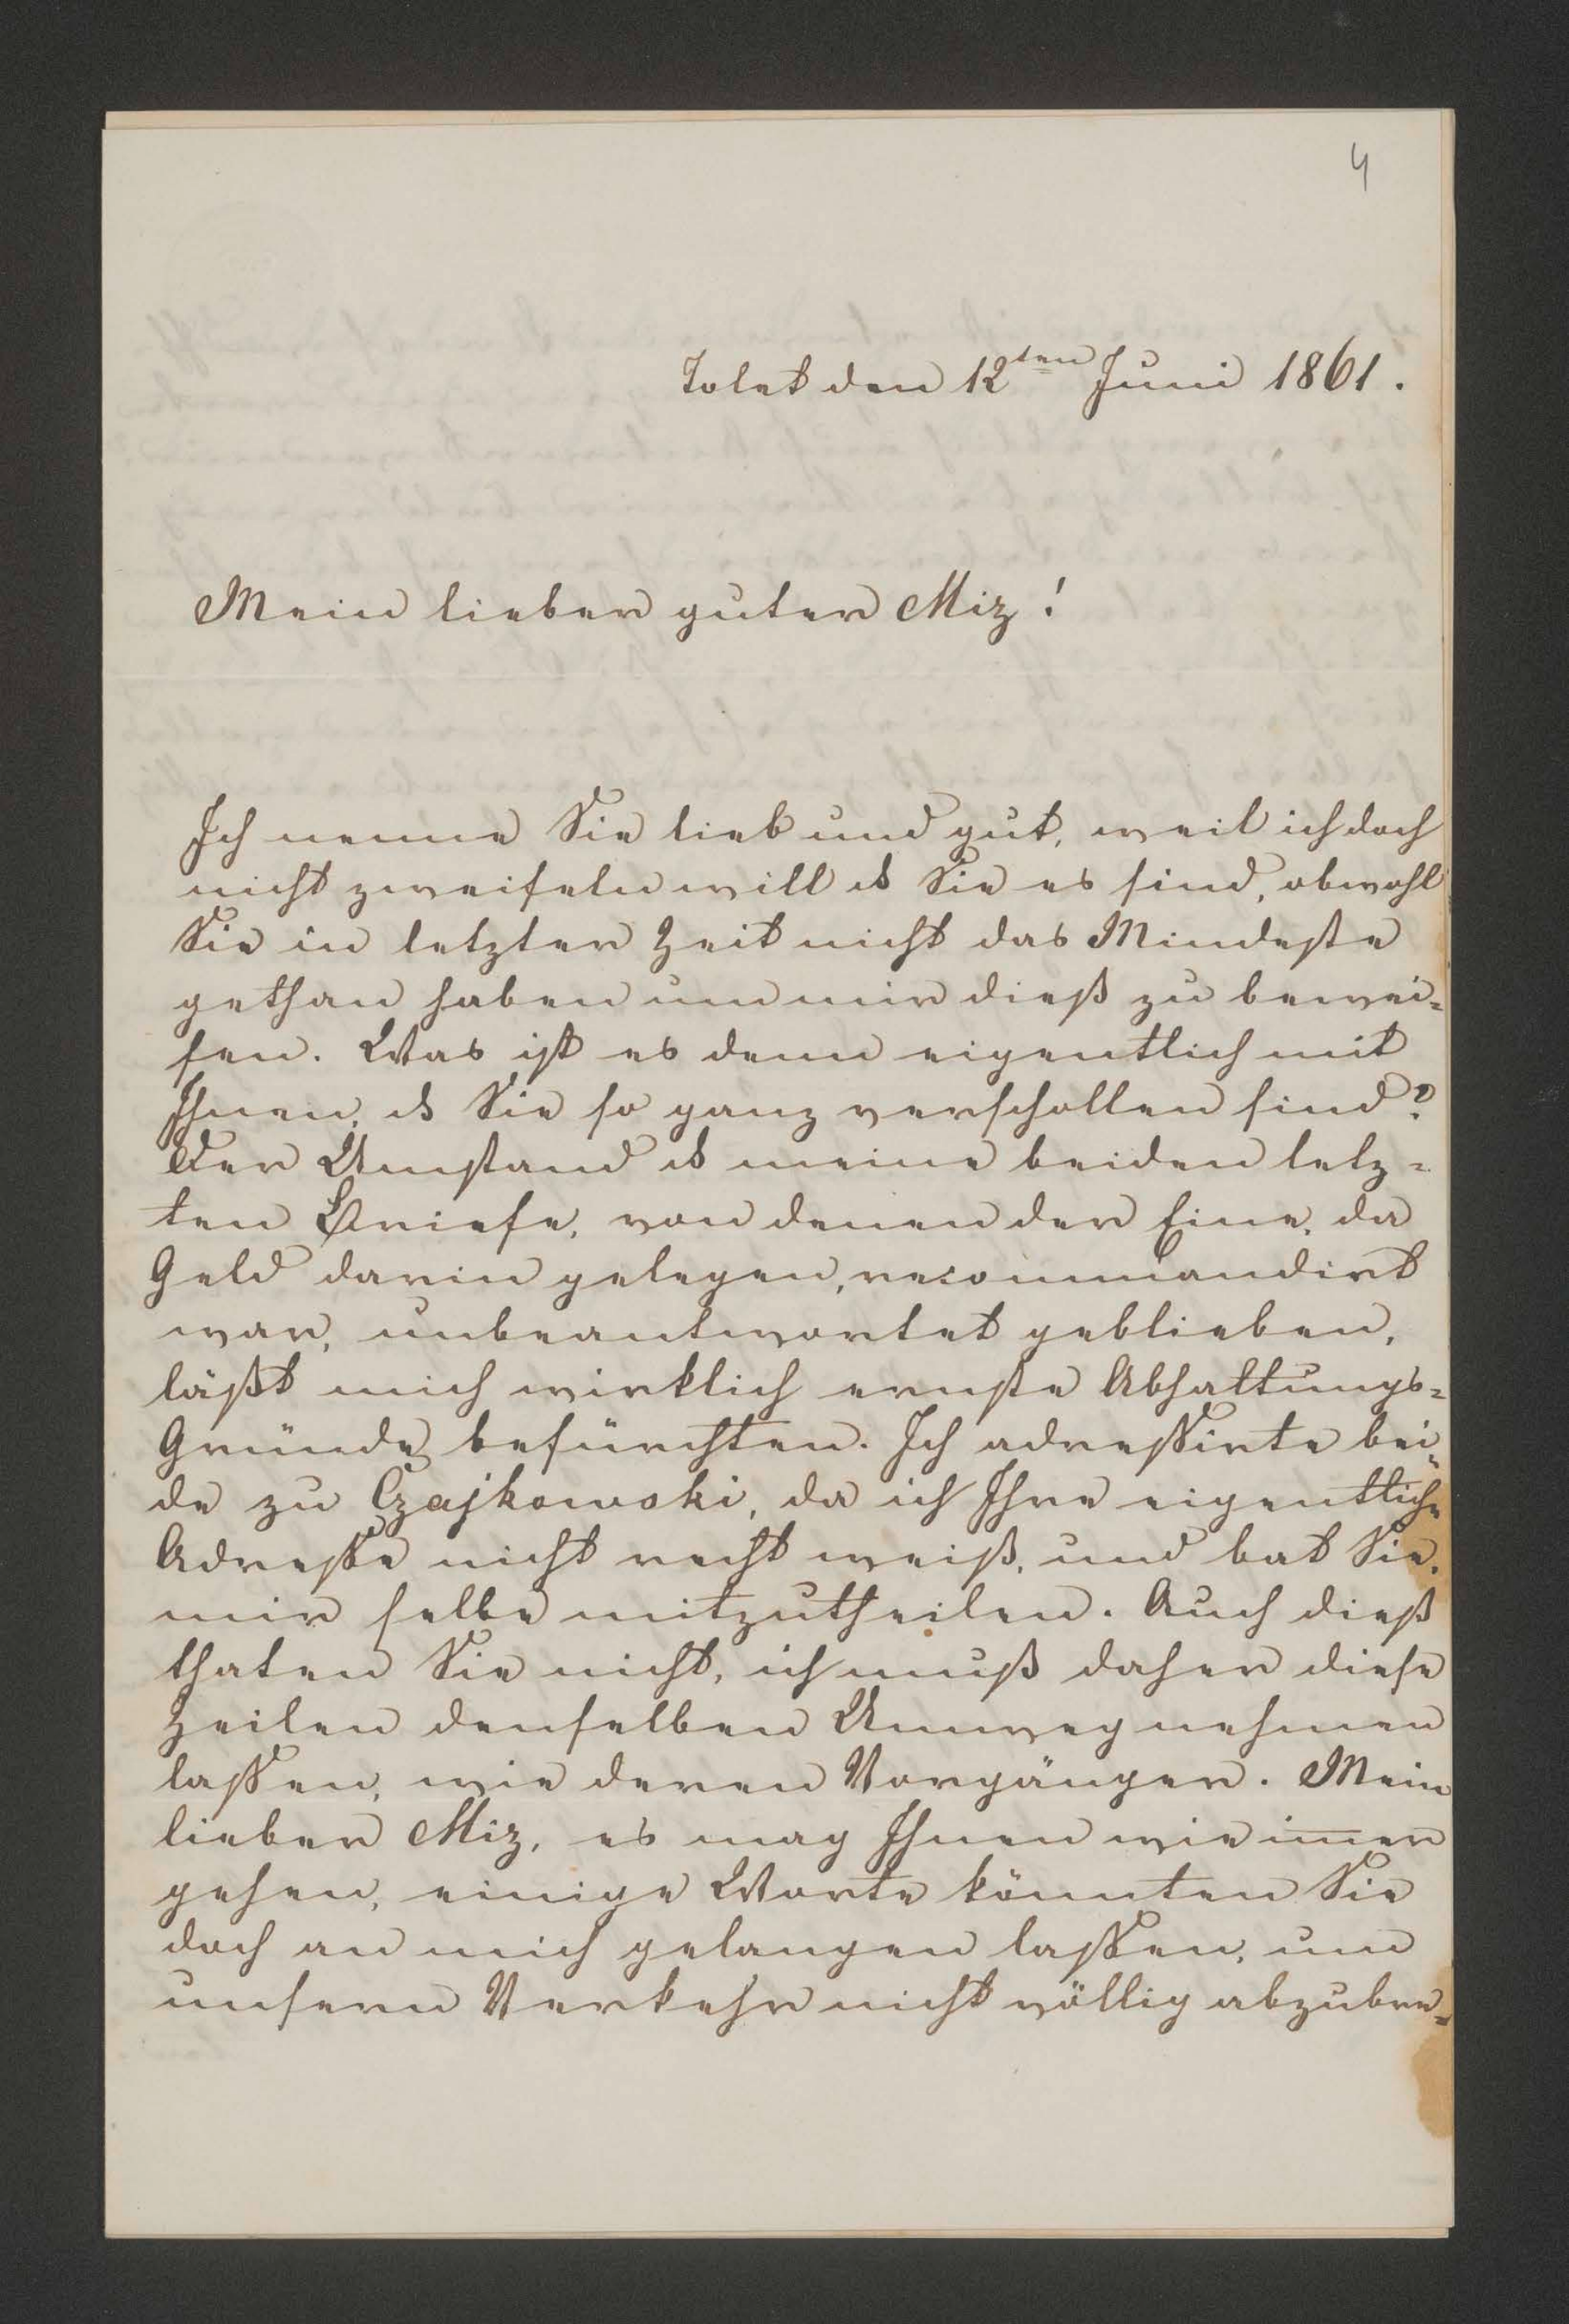 4
Tolet den 12ten Juni 1861.
Mein lieber guter Miz!
Ich nenne Sie lieb und gut, weil ich doch
nicht zweifeln will dß Sie es sind, obwohl
Sie in letzter Zeit nicht das Mindeste
gethan haben um mir dieß zu bewei=
sen. Was ist es denn eigentlich mit
Ihnen, dß Sie so ganz verschollen sind?
Der Umstand dß meine beiden letz=
ten Briefe, von denen der Eine, da
Geld darin gelegen, recommandirt
war, unbeantwortet geblieben,
läßt mich wirklich ernste Abhaltungs=
Gründe befürchten. Ich adressirte bei=
de zu Czajkowski, da ich Ihre eigentliche
Adresse nicht recht weiß, und bat Sie,
mir selbe mitzutheilen. Auch dieß
thaten Sie nicht, ich muß daher diese
Zeilen denselben Umweg nehmen
lassen, wie deren Vorgänger. Mein
lieber Miz, es mag Ihnen wie im̅er
gehen, einige Worte könnten Sie
doch an mich gelangen lassen, um
unsern Verkehr nicht völlig abzubre=